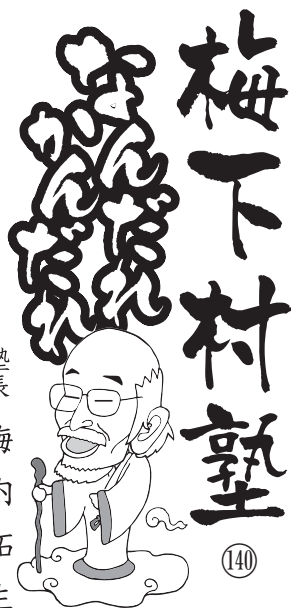 梅下村塾
⑭⓪
なんだれ
かんだれ
塾長 梅内拓生